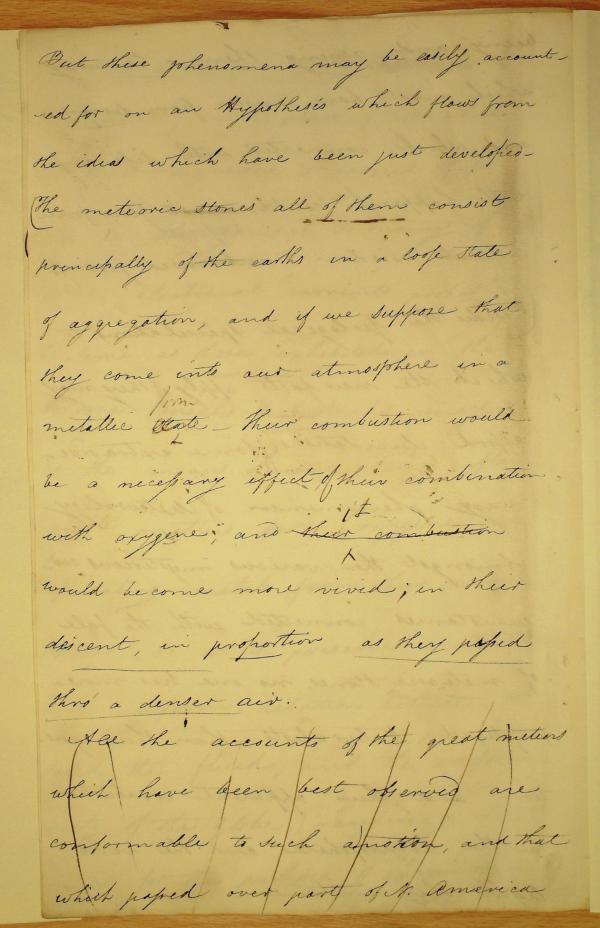 But these phenomena may be easily account-
-ed for on an Hypothesis which flows from
the ideas which have been just developed-
(The meteoric stones all of them consist
principally of the earths in a loose state
of aggregation, and if we suppose that
they come into our atmosphere in a
form
metallic state - their combustion would
be a necessary effect of their combination
with oxygene; and their combustion
it
would become more vivid; in their
descent, in proportion as they passed
thro' a denser air.
All the accounts of the great meteors
which have been best observed are
conformable to such a notion, and that
which passed over part of N. America